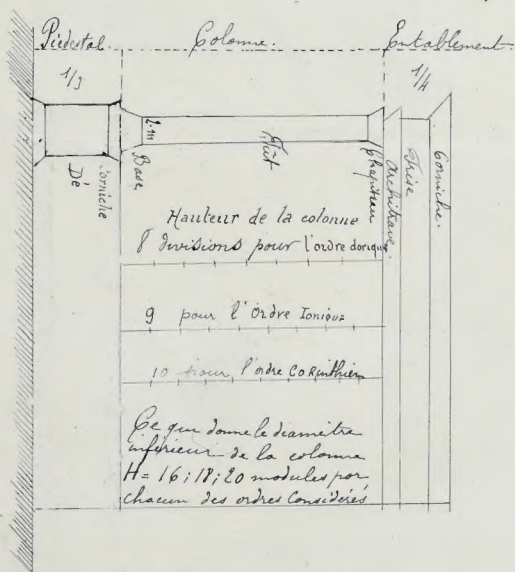 Piédestal. Colonne. Entablement.
1/3 1/4
2 m
Base
Fût
Chapiteau
architrave.
Frise
Corniche.
Corniche
Dé
Hauteur de la colonne
8 divisions pour l'ordre dorique
9 pour l'Ordre Ionique
10 pour l'ordre CoRinthien
Ce qui donne le diamètre
inférieur de la colonne
H = 16; 18; 20 modules por
chacun des ordres Considérés